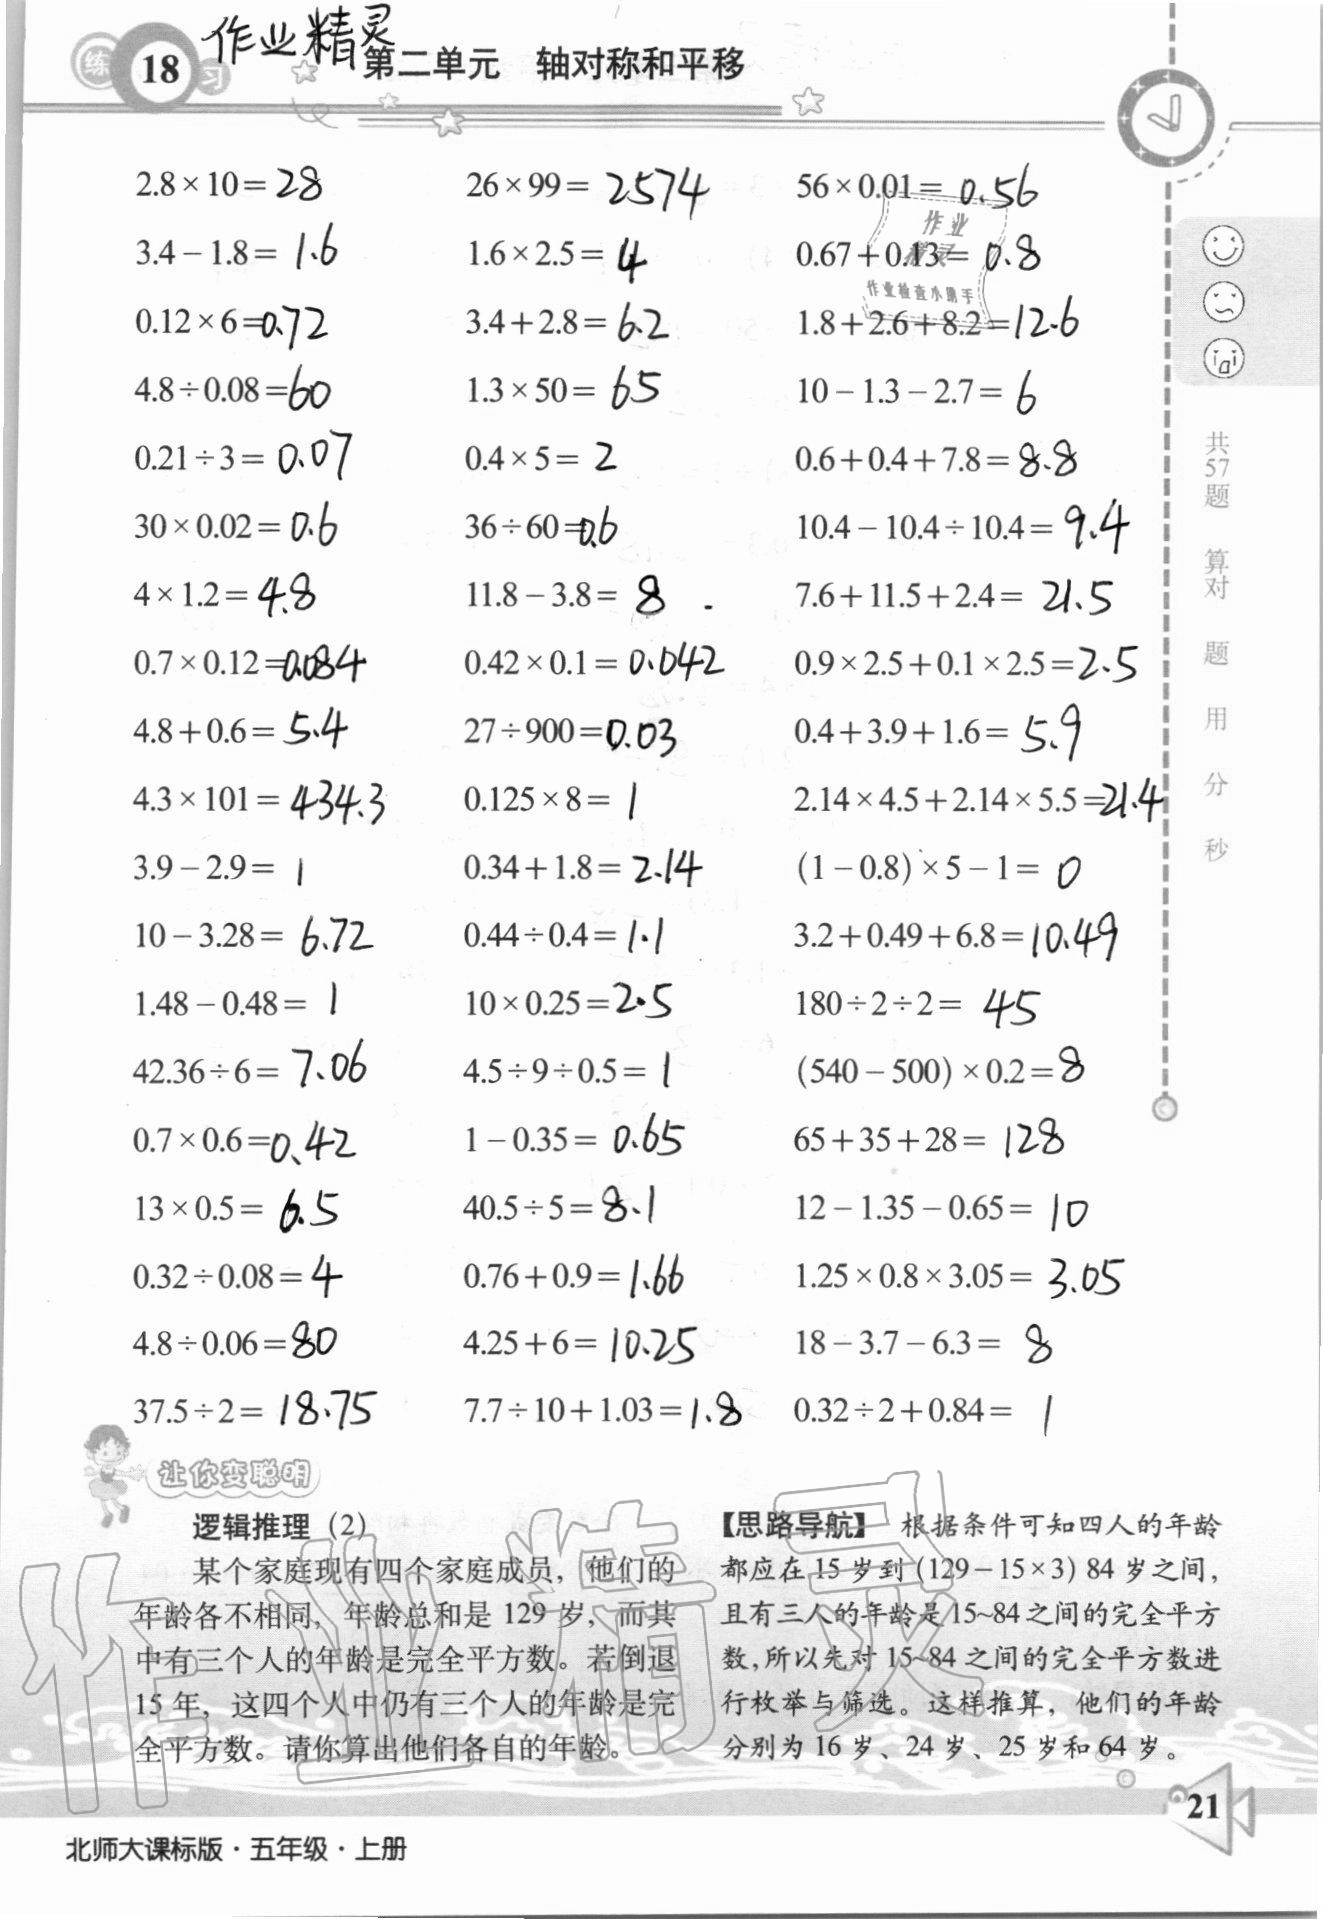 练 18 习 作业精灵 第二单元 轴对称和平移
2.8×10=28 26×99=2574 56×0.01=0.56
作业
3.4-1.8=1.6 1.6×2.5=4 0.67+0.13=0.8
精灵
作业检查小助手
0.12×6=0.72 3.4+2.8=6.2 1.8+2.6+8.2=12.6
4.8÷0.08=60 1.3×50=65 10-1.3-2.7=6
0.21÷3=0.07 0.4×5=2 0.6+0.4+7.8=8.8
30×0.02=0.6 36÷60=0.6 10.4-10.4÷10.4=9.4
4×1.2=4.8 11.8-3.8=8 7.6+11.5+2.4=21.5
0.7×0.12=0.084 0.42×0.1=0.042 0.9×2.5+0.1×2.5=2.5
4.8+0.6=5.4 27÷900=0.03 0.4+3.9+1.6=5.9
4.3×101=434.3 0.125×8=1 2.14×4.5+2.14×5.5=21.4
3.9-2.9=1 0.34+1.8=2.14 (1-0.8)×5-1=0
10-3.28=6.72 0.44÷0.4=1.1 3.2+0.49+6.8=10.49
1.48-0.48=1 10×0.25=2.5 180÷2÷2=45
42.36÷6=7.06 4.5÷9÷0.5=1 (540-500)×0.2=8
0.7×0.6=0.42 1-0.35=0.65 65+35+28=128
13×0.5=6.5 40.5÷5=8.1 12-1.35-0.65=10
0.32÷0.08=4 0.76+0.9=1.66 1.25×0.8×3.05=3.05
4.8÷0.06=80 4.25+6=10.25 18-3.7-6.3=8
37.5÷2=18.75 7.7÷10+1.03=1.8 0.32÷2+0.84=1
共57题 算对 题 用 分 秒
让你变聪明
逻辑推理（2）
某个家庭现有四个家庭成员，他们的
年龄各不相同，年龄总和是 129 岁，而其
中有三个人的年龄是完全平方数。若倒退
15 年，这四个人中仍有三个人的年龄是完
全平方数。请你算出他们各自的年龄。
【思路导航】 根据条件可知四人的年龄
都应在 15 岁到 (129-15×3) 84 岁之间，
且有三人的年龄是 15~84 之间的完全平方
数，所以先对 15~84 之间的完全平方数进
行枚举与筛选。这样推算，他们的年龄
分别为 16 岁、24 岁、25 岁和 64 岁。
作业精灵
21
北师大课标版·五年级·上册